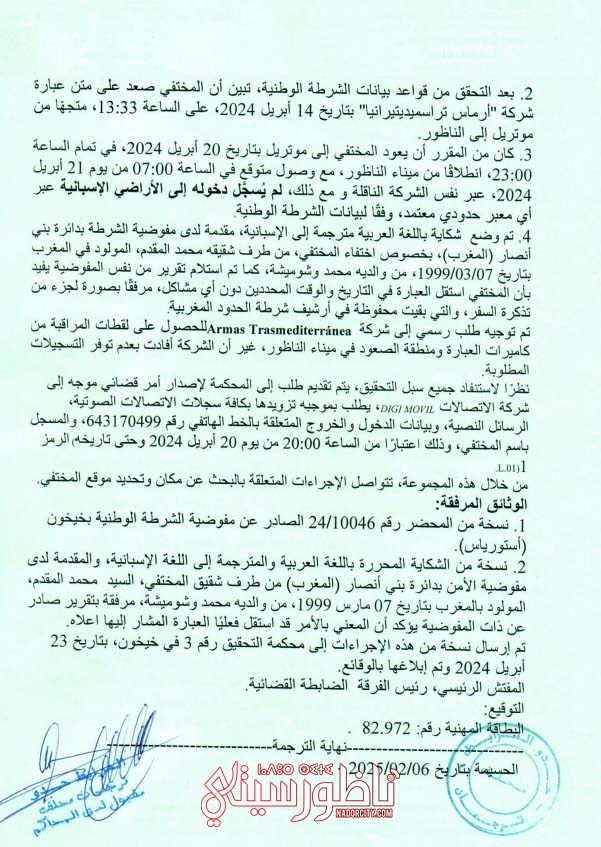 2. بعد التحقق من قواعد بيانات الشرطة الوطنية، تبين أن المختفي صعد على متن عبارة
شركة "أرماس تراسميديتيرانيا" بتاريخ 14 أبريل 2024، على الساعة 13:33، متجهًا من
موتريل إلى الناظور.
3. كان من المقرر أن يعود المختفي إلى موتريل بتاريخ 20 أبريل 2024، في تمام الساعة
23:00، انطلاقًا من ميناء الناظور، مع وصول متوقع في الساعة 07:00 من يوم 21 أبريل
2024، عبر نفس الشركة الناقلة و مع ذلك، لم يُسجَّل دخوله إلى الأراضي الإسبانية عبر
أي معبر حدودي معتمد، وفقًا لبيانات الشرطة الوطنية.
4. تم وضع شكاية باللغة العربية مترجمة إلى الإسبانية، مقدمة لدى مفوضية الشرطة بدائرة بني
أنصار (المغرب)، بخصوص اختفاء المختفي، من طرف شقيقه محمد المقدم، المولود في المغرب
بتاريخ 1999/03/07، من والديه محمد وشوميشة، كما تم استلام تقرير من نفس المفوضية يفيد
بأن المختفي استقل العبارة في التاريخ والوقت المحددين دون أي مشاكل، مرفقًا بصورة لجزء من
تذكرة السفر، والتي بقيت محفوظة في أرشيف شرطة الحدود المغربية.
تم توجيه طلب رسمي إلى شركة Armas Trasmediterránea للحصول على لقطات المراقبة من
كاميرات العبارة ومنطقة الصعود في ميناء الناظور، غير أن الشركة أفادت بعدم توفر التسجيلات
المطلوبة.
نظرًا لاستنفاد جميع سبل التحقيق، يتم تقديم طلب إلى المحكمة لإصدار أمر قضائي موجه إلى
شركة الاتصالات DIGI MOVIL، يطلب بموجبه تزويدها بكافة سجلات الاتصالات الصوتية،
الرسائل النصية، وبيانات الدخول والخروج المتعلقة بالخط الهاتفي رقم 643170499، والمسجل
باسم المختفي، وذلك اعتبارًا من الساعة 20:00 من يوم 20 أبريل 2024 وحتى تاريخه( الرمز
1(L.01.
من خلال هذه المجموعة، تتواصل الإجراءات المتعلقة بالبحث عن مكان وتحديد موقع المختفي.
الوثائق المرفقة:
1. نسخة من المحضر رقم 24/10046 الصادر عن مفوضية الشرطة الوطنية بخيخون
(أستورياس).
2. نسخة من الشكاية المحررة باللغة العربية والمترجمة إلى اللغة الإسبانية، والمقدمة لدى
مفوضية الأمن بدائرة بني أنصار (المغرب) من طرف شقيق المختفي، السيد محمد المقدم،
المولود بالمغرب بتاريخ 07 مارس 1999، من والديه محمد وشوميشة، مرفقة بتقرير صادر
عن ذات المفوضية يؤكد أن المعني بالأمر قد استقل فعليًا العبارة المشار إليها اعلاه.
تم إرسال نسخة من هذه الإجراءات إلى محكمة التحقيق رقم 3 في خيخون، بتاريخ 23
أبريل 2024 وتم إبلاغها بالوقائع.
المفتش الرئيسي، رئيس الفرقة الضابطة القضائية.
التوقيع:
البطاقة المهنية رقم: 82.972 .
نهاية الترجمة
الحسيمة بتاريخ 2025/02/06
ترجمان محلف
مقبول لدى المحاكم
ناظورسيتي
NADORCITY.COM